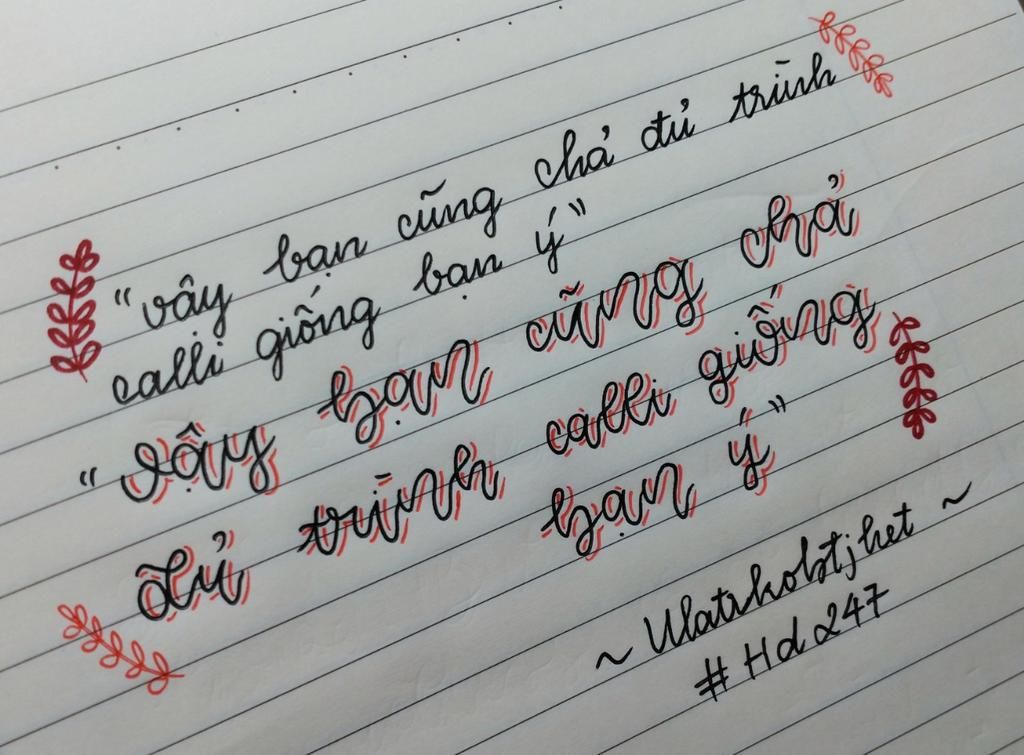 “vây bạn cũng chả đủ trình
calli giống bạn ý”
“vậy bạn cũng chả
đủ trình calli giống
bạn ý”
~ Ulatrkobtjhet ~
# Hd 247